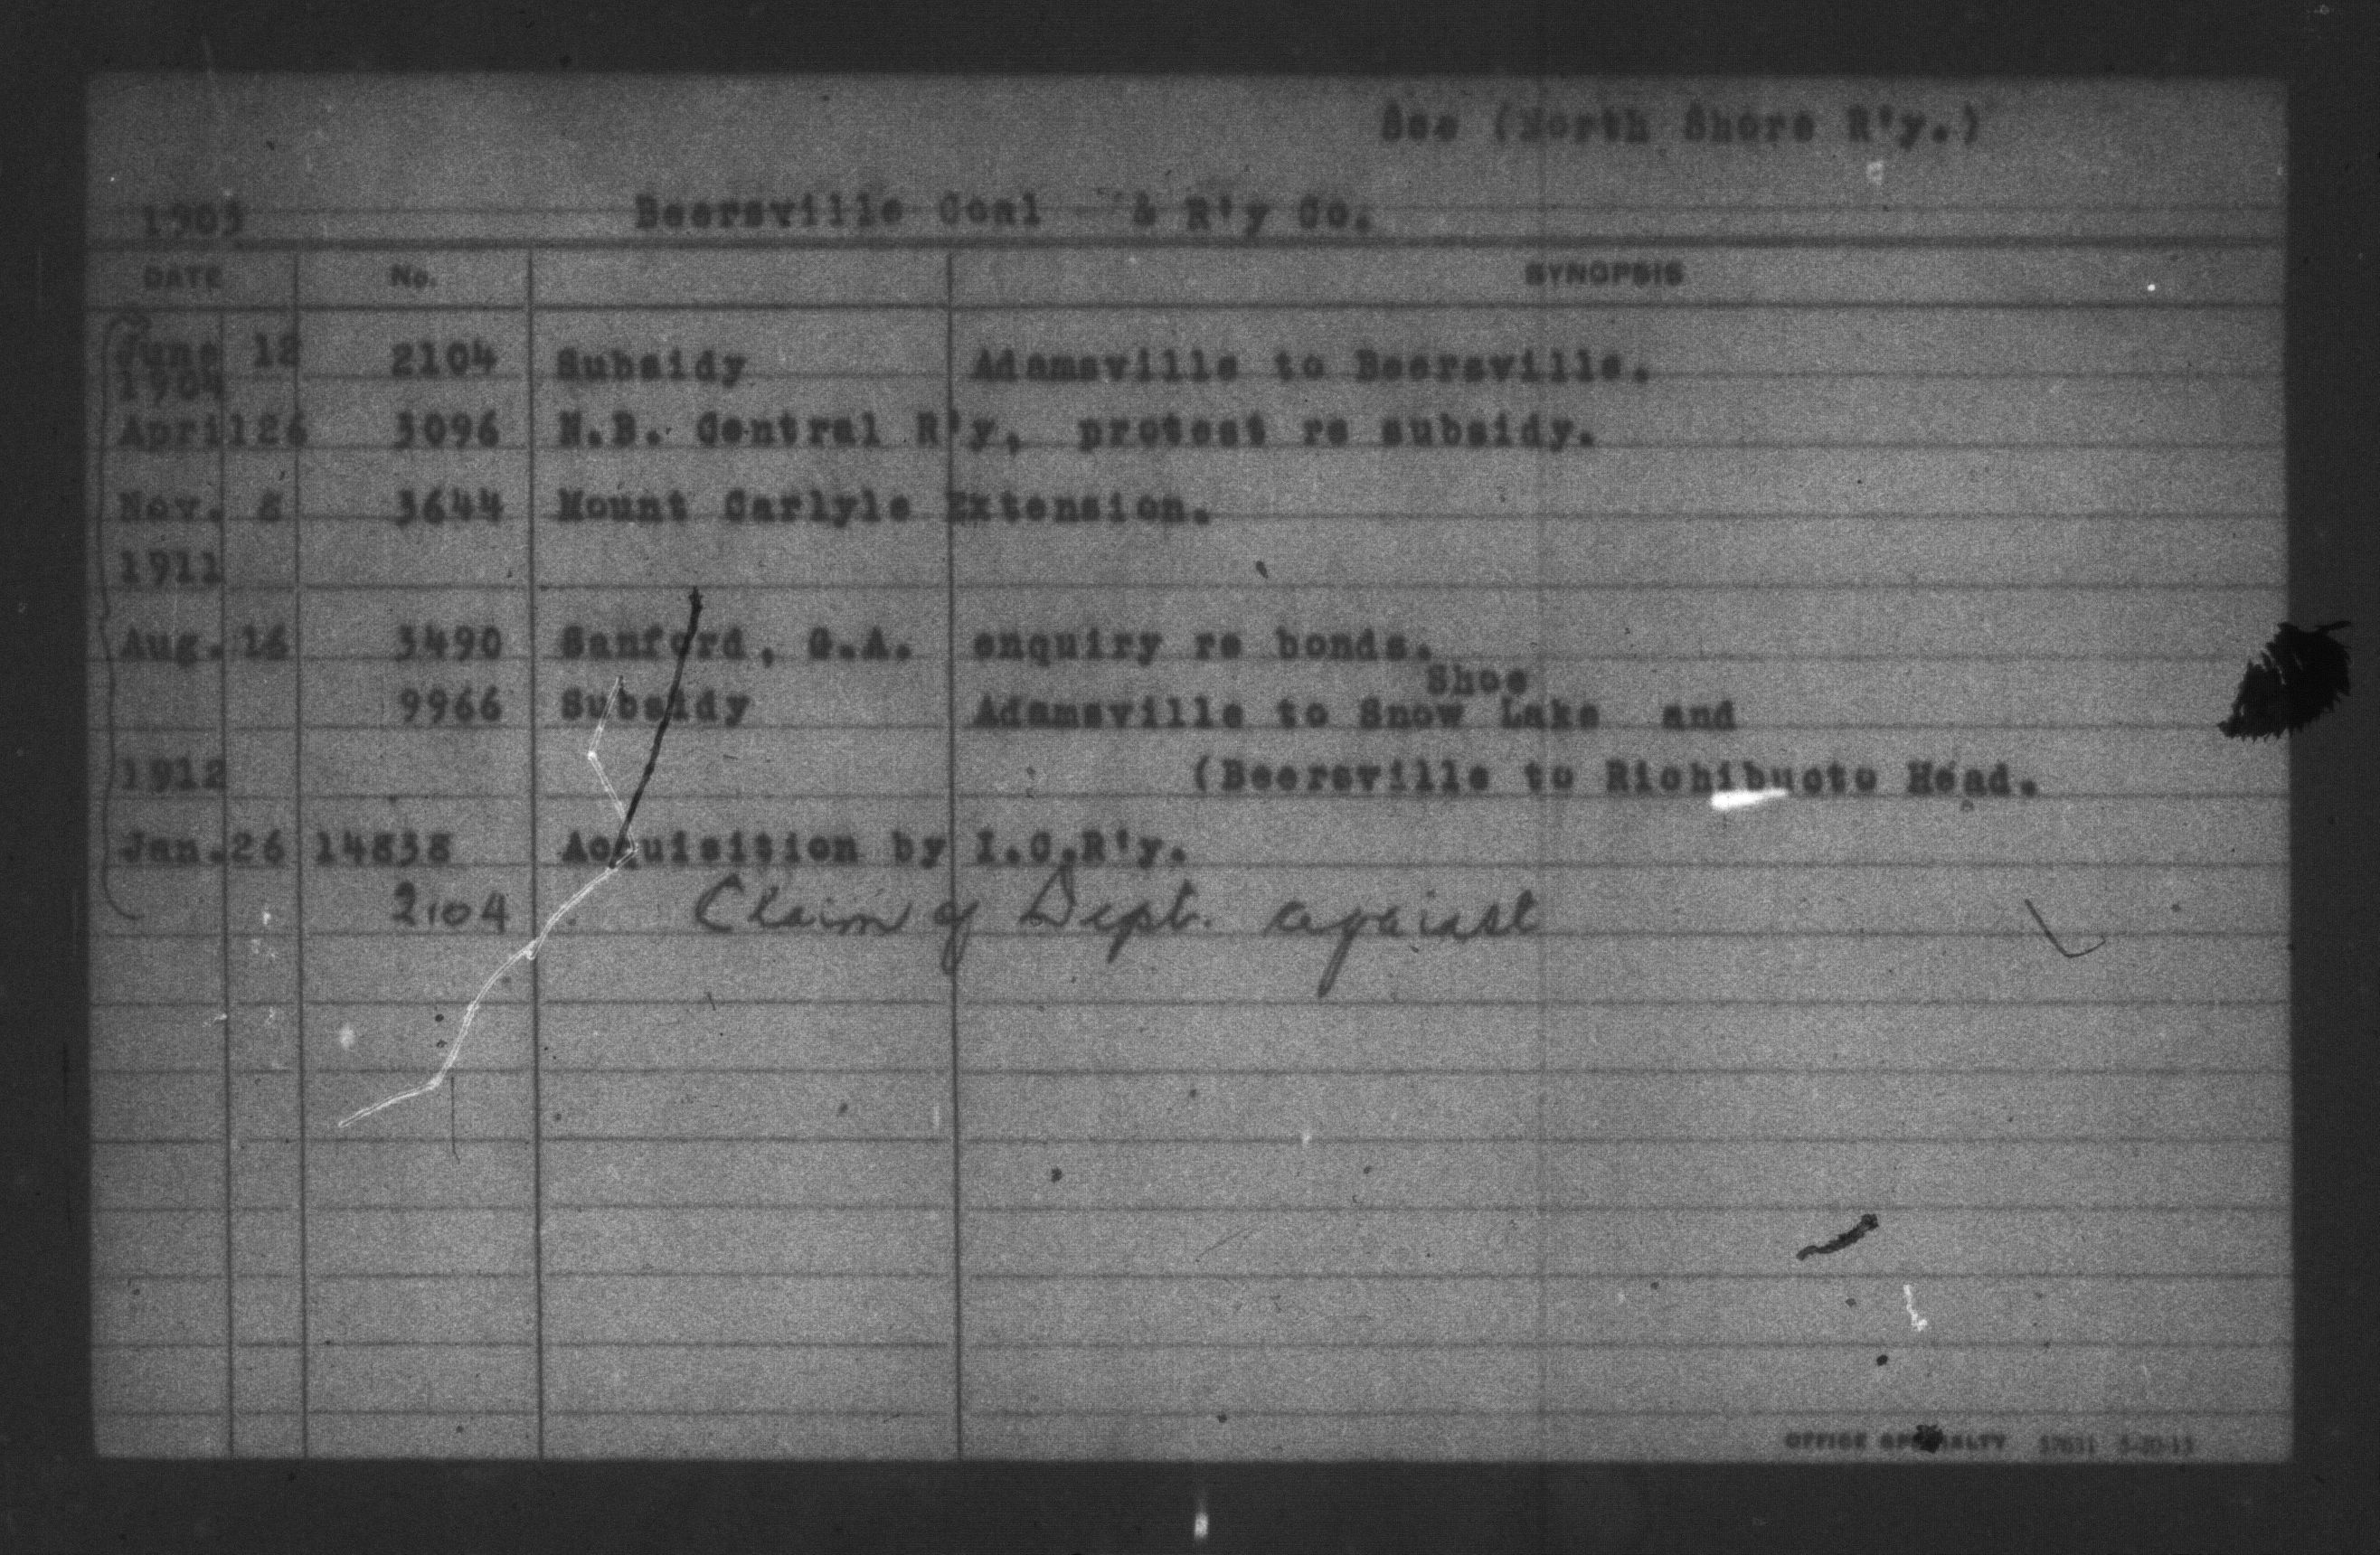 See (North Shore R'y.)
1903 Beersville Coal & R'y Co.
DATE No. SYNOPSIS
June 18 2104 Subsidy Adamsville to Beersville.
1904
April 26 3096 N.B. Central R'y, protest re subsidy.
Nov. 8 3644 Mount Carlyle Extension.
1911
Aug. 16 3490 Sanford, G.A. enquiry re bonds.
Shoe
9966 Subsidy Adamsville to Snow Lake and
1912 (Beersville to Richibucto Head.
Jan. 26 14838 Acquisition by I.C.R'y.
2104 Claim of Dept. against
OFFICE SPECIALTY